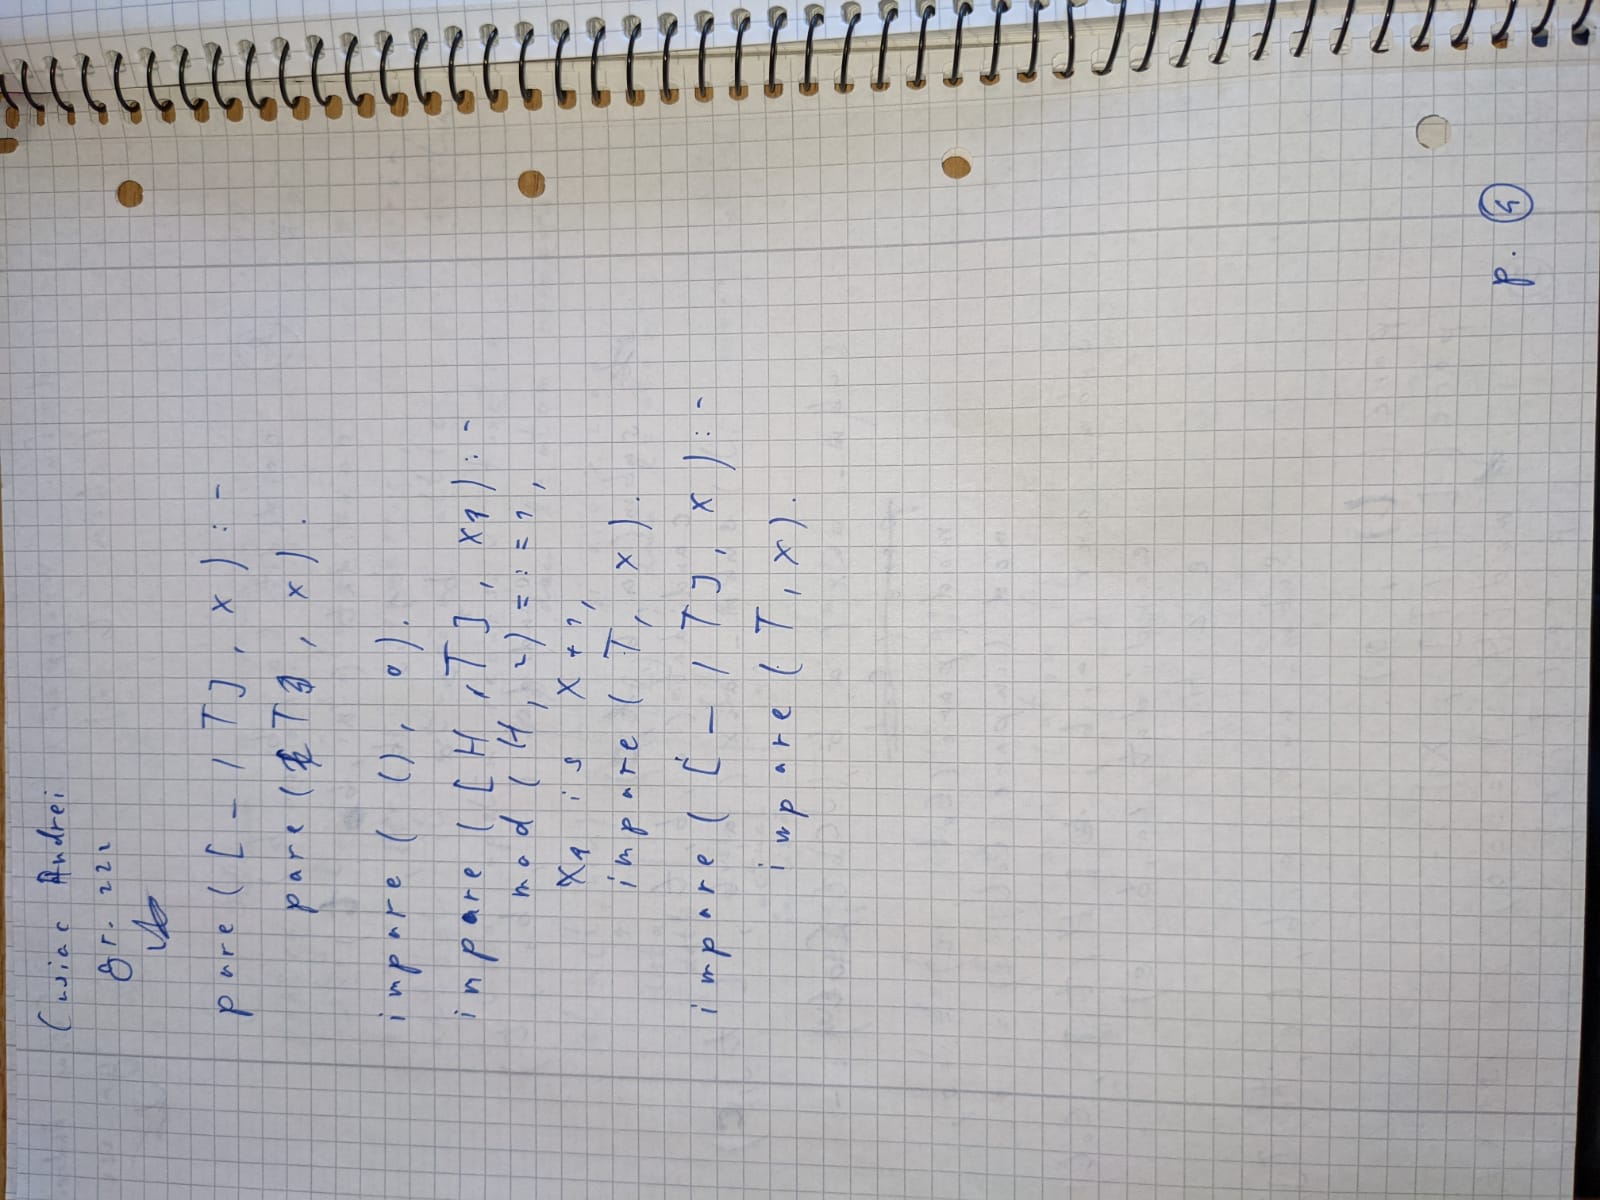 Cusiac Andrei
gr. 222
pare ([ _ | T], X) :-
pare (T, X).
impare ( (), 0).
impare ([H | T], X1) :-
mod (H, 2) =:= 1,
X1 is X + 1,
impare ( T, X).
impare ( [ _ | T], X) :-
impare ( T, X).
p. 4